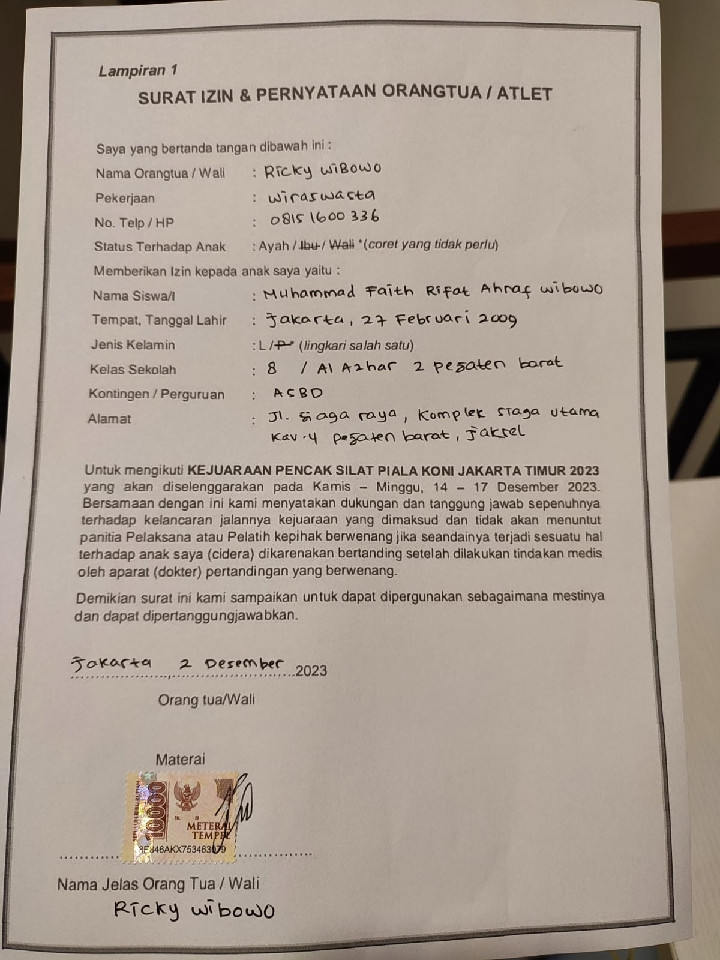 Lampiran 1
SURAT IZIN & PERNYATAAN ORANGTUA / ATLET
Saya yang bertanda tangan dibawah ini :
Nama Orangtua / Wali : Ricky wiBowo
Pekerjaan : wiraswasta
No. Telp / HP : 0815 1600 336
Status Terhadap Anak : Ayah / Ibu / Wali *(coret yang tidak perlu)
Memberikan Izin kepada anak saya yaitu :
Nama Siswa/I : Muhammad Faith Rifat Ahnaf wibowo
Tempat, Tanggal Lahir : Jakarta, 27 Februari 2009
Jenis Kelamin : L / P (lingkari salah satu)
Kelas Sekolah : 8 / Al Azhar 2 pejaten barat
Kontingen / Perguruan : ASBD
Alamat : Jl. Siaga raya, Komplek Siaga utama
Kav.4 pejaten barat, jaksel
Untuk mengikuti KEJUARAAN PENCAK SILAT PIALA KONI JAKARTA TIMUR 2023
yang akan diselenggarakan pada Kamis – Minggu, 14 – 17 Desember 2023.
Bersamaan dengan ini kami menyatakan dukungan dan tanggung jawab sepenuhnya
terhadap kelancaran jalannya kejuaraan yang dimaksud dan tidak akan menuntut
panitia Pelaksana atau Pelatih kepihak berwenang jika seandainya terjadi sesuatu hal
terhadap anak saya (cidera) dikarenakan bertanding setelah dilakukan tindakan medis
oleh aparat (dokter) pertandingan yang berwenang.
Demikian surat ini kami sampaikan untuk dapat dipergunakan sebagaimana mestinya
dan dapat dipertanggungjawabkan.
Jakarta, 2 Desember 2023
Orang tua/Wali
Materai
10000
METERAI
TEMPEL
Nama Jelas Orang Tua / Wali
Ricky wibowo